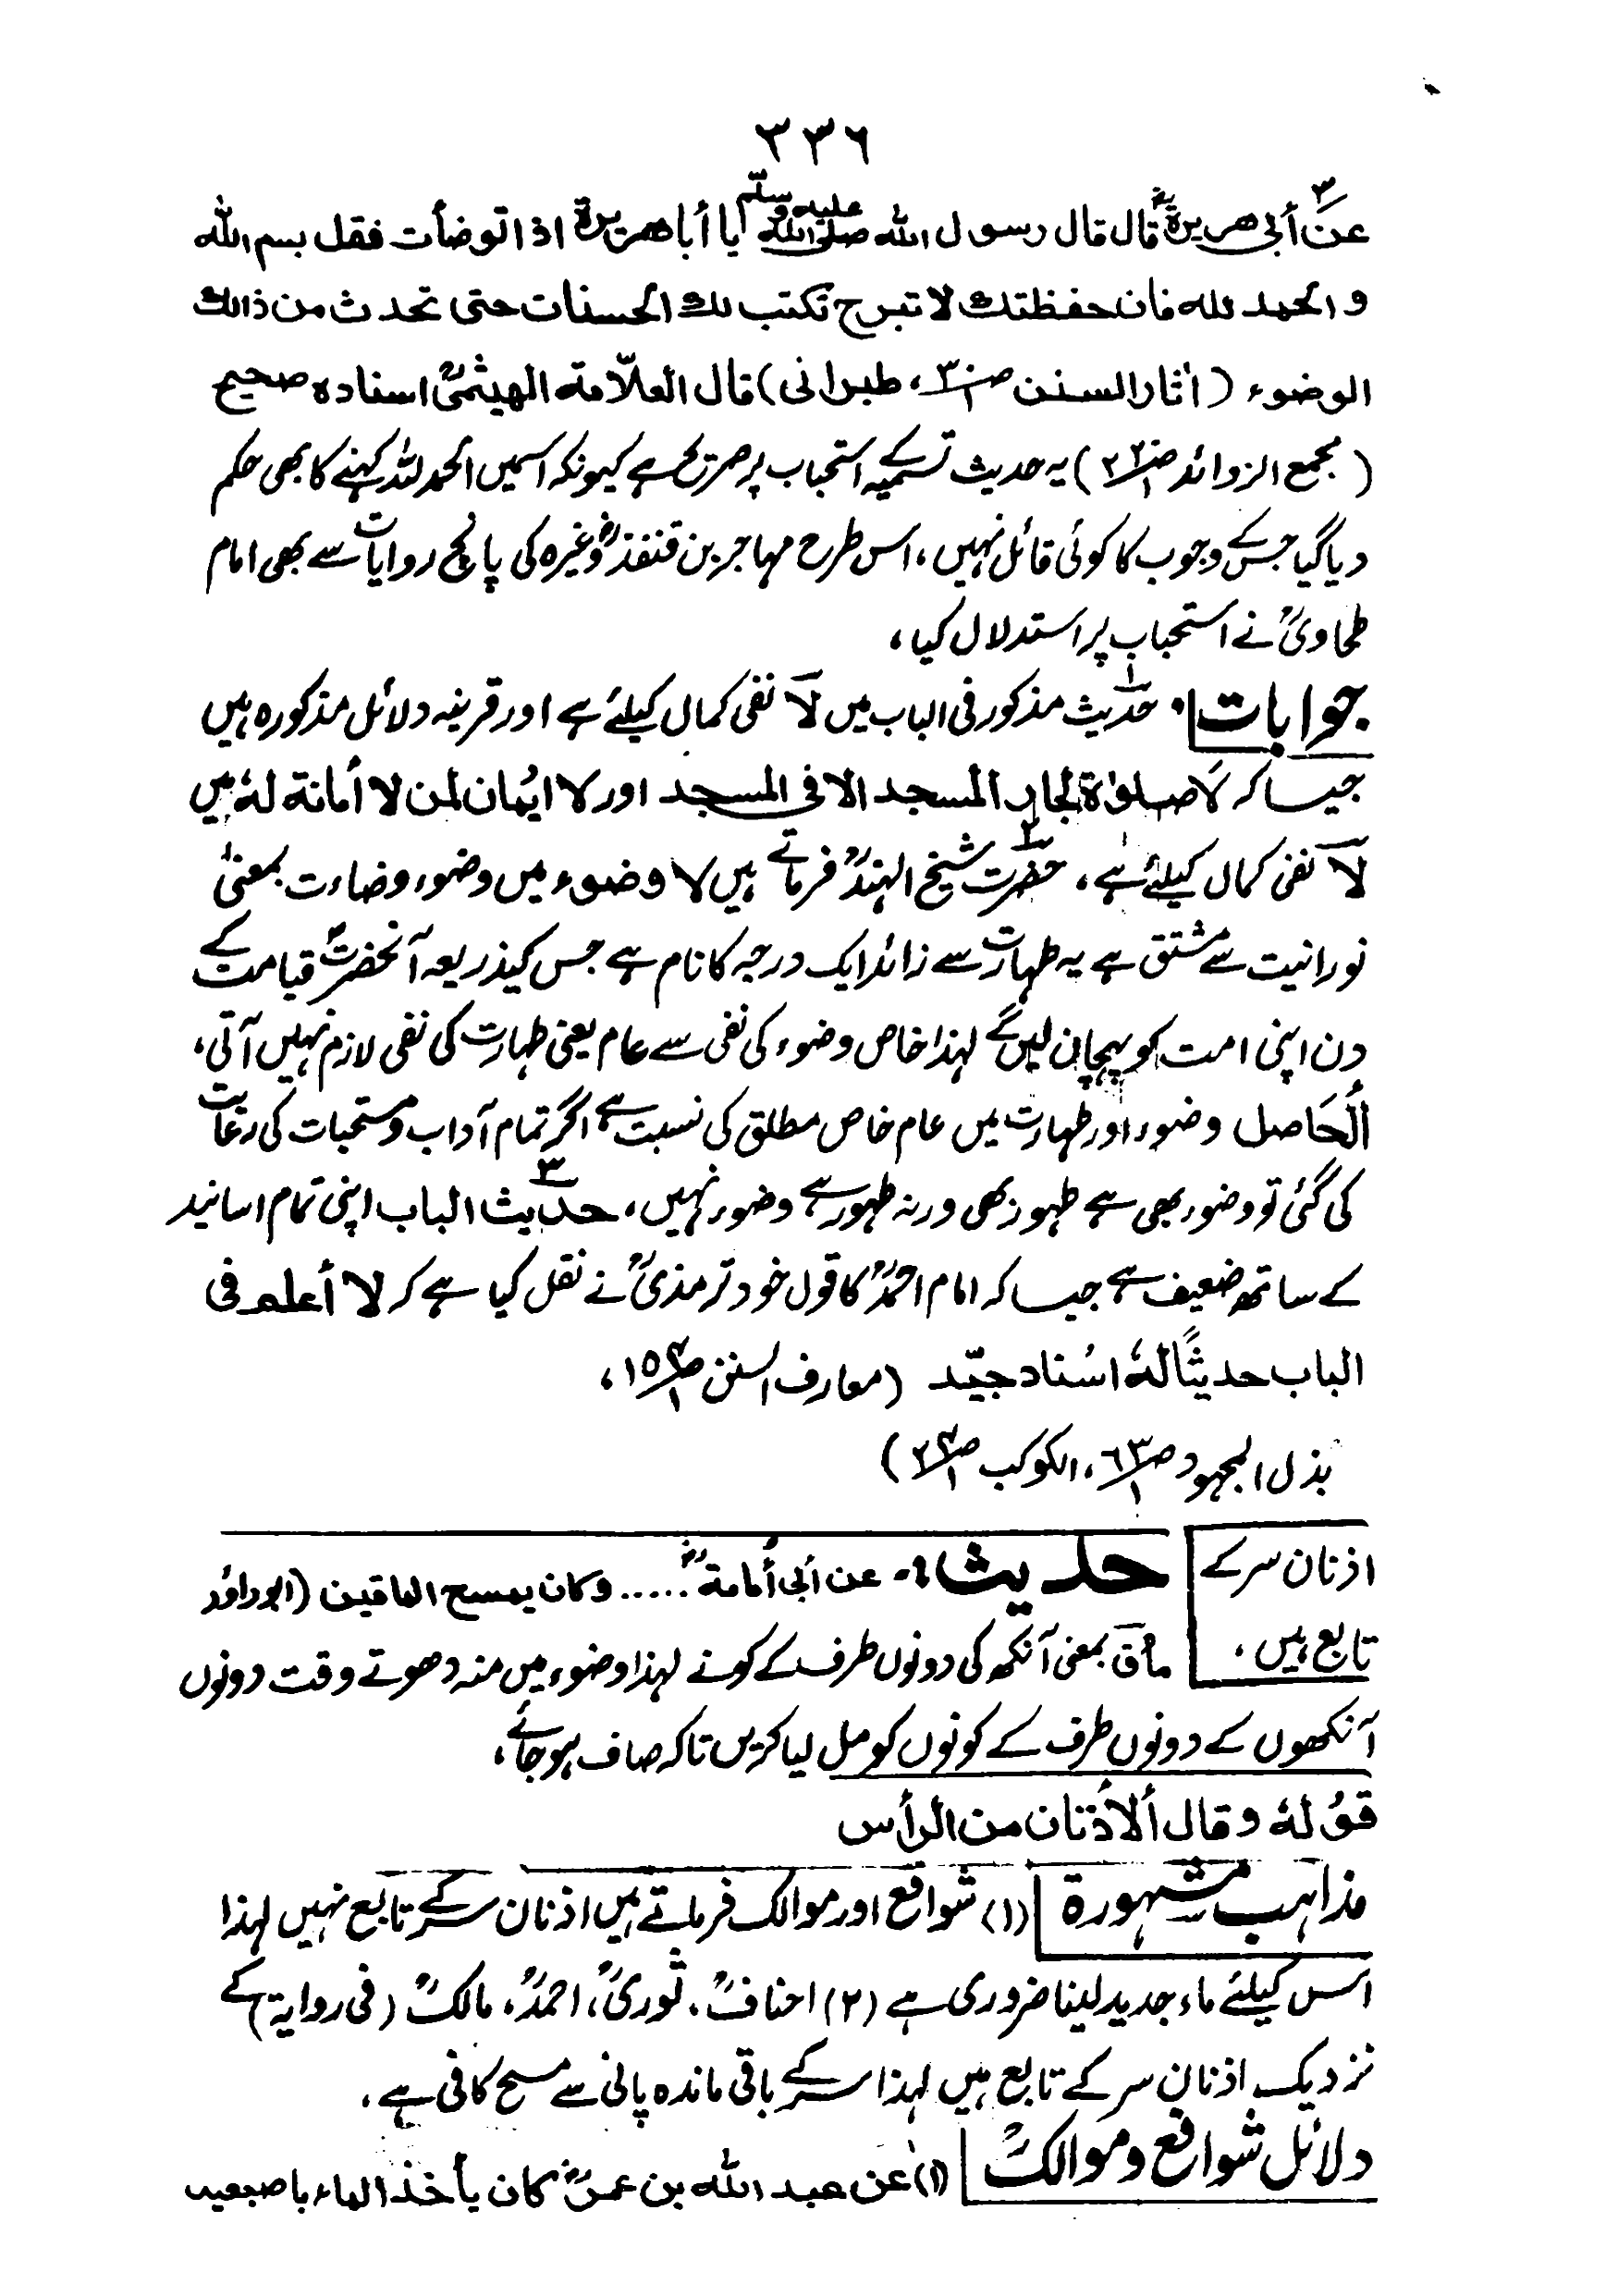 ۳۳۶
۳ عن أبی ھریرۃؓ قال قال رسول اللہ صلی اللہ علیہ وسلم یا أبا ھریرۃ اذا توضأت فقل بسم اللہ
والحمد للہ فان حفظتك لا تبرح تکتب لك الحسنات حتی تحدث من ذالك
الوضوء (اٰثار السنن ص۳۰/۱، طبرانی) قال العلّامة الهیثمیؒ اسنادہ صحیح
(مجمع الزوائد ص۲۲۰/۱) یہ حدیث تسمیہ کے استحباب پر صریح ہے کیونکہ اسمیں الحمد للہ کہنے کا بھی حکم
دیا گیا جس کے وجوب کا کوئی قائل نہیں، اس طرح مہاجر بن قنفذؓ وغیرہ کی پانچ روایات سے بھی امام
طحاویؒ نے استحباب پر استدلال کیا،
جوابات: ۱ حدیث مذکور فی الباب میں لَا نفی کمال کیلئے ہے اور قرینہ دلائل مذکورہ ہیں
جیسا کہ لَا صلوٰۃ لجار المسجد الا فی المسجد اور لا ایمان لمن لا أمانة لہٗ میں
لَا نفی کمال کیلئے ہے، ۲ حضرت شیخ الہندؒ فرماتے ہیں لا وضوء میں وضوء وضاءت بمعنیٰ
نورانیت سے مشتق ہے یہ طہارت سے زائد ایک درجہ کا نام ہے جس کیذریعہ آنحضرتؐ قیامت کے
دن اپنی امت کو پہچان لیں گے لہذا خاص وضوء کی نفی سے عام یعنی طہارت کی نفی لازم نہیں آتی،
اَلْحَاصل وضوء اور طہارت میں عام خاص مطلق کی نسبت ہے اگر تمام آداب و مستحبات کی رعایت
کی گئی تو وضوء بھی ہے طہور بھی ورنہ طہور ہے وضوء نہیں، ۳ حدیث الباب اپنی تمام اسانید
کے ساتھ ضعیف ہے جیسا کہ امام احمدؒ کا قول خود ترمذیؒ نے نقل کیا ہے کہ لا أعلم فی
الباب حدیثًا لہٗ اسْناد جیّد (معارف السنن ص۱۵۴/۱،
بذل المجہود ص۶۳/۱، الکوکب ص۲۴/۱)
اذنان سر کے
تابع ہیں،
حدیث: عن أبی أمامةؓ ..... وکان یمسح الماقین (ابوداؤد
ماٰق بمعنی آنکھ کی دونوں طرف کے کونے لہذا وضوء میں منہ دھوتے وقت دونوں
آنکھوں کے دونوں طرف کے کونوں کو مل لیا کریں تاکہ صاف ہو جائے،
قوْلہٗ وقال ألأذنان من الرأس
مذاہب مشہورۃ (۱) شوافع اور موالک فرماتے ہیں اذنان سر کے تابع نہیں لہذا
اس کیلئے ماء جدید لینا ضروری ہے (۲) احنافؒ، ثوریؒ، احمدؒ، مالکؒ (فی روایۃ) کے
نزدیک اذنان سر کے تابع ہیں لہذا سر کے باقی ماندہ پانی سے مسح کافی ہے،
دلائل شوافع و موالکؒ (۱) عن عبد اللہ بن عمرؓ کان یأخذ الماء باصبعیہ